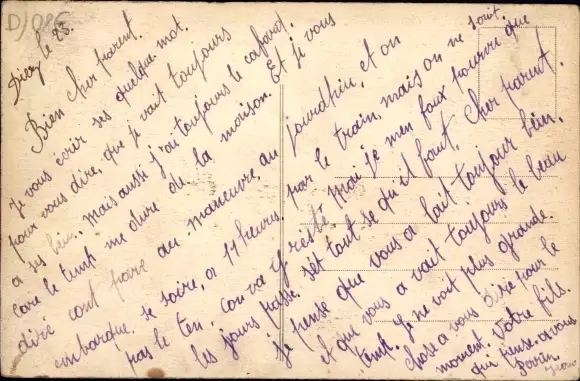 D/086
Diez le 28.
Bien cher parent.
Je vous écrir ses quelque mot.
pour vous dire, que je vait toujours
a ses bein. mais aussi j'ai toujours le cafard.
care le temp me dure de la morison. Et je vous
diré cont pare au maneuvre, au jourdhin, et on
embarque. se soire, a 11 heures. par le train, mais on ne soit.
pas le ten. con va y resté. Moi je men foux pourvu que
les jours passe. sét tout se qu'il faut, Cher parent.
Je pense que vous a lait toujour bein.
et que vous a vait toujours le beau
temp. Je ne voit plus grande.
chose a vous dire pour le
moment. Votre fils.
qui pense a vous
Perrin
Jean